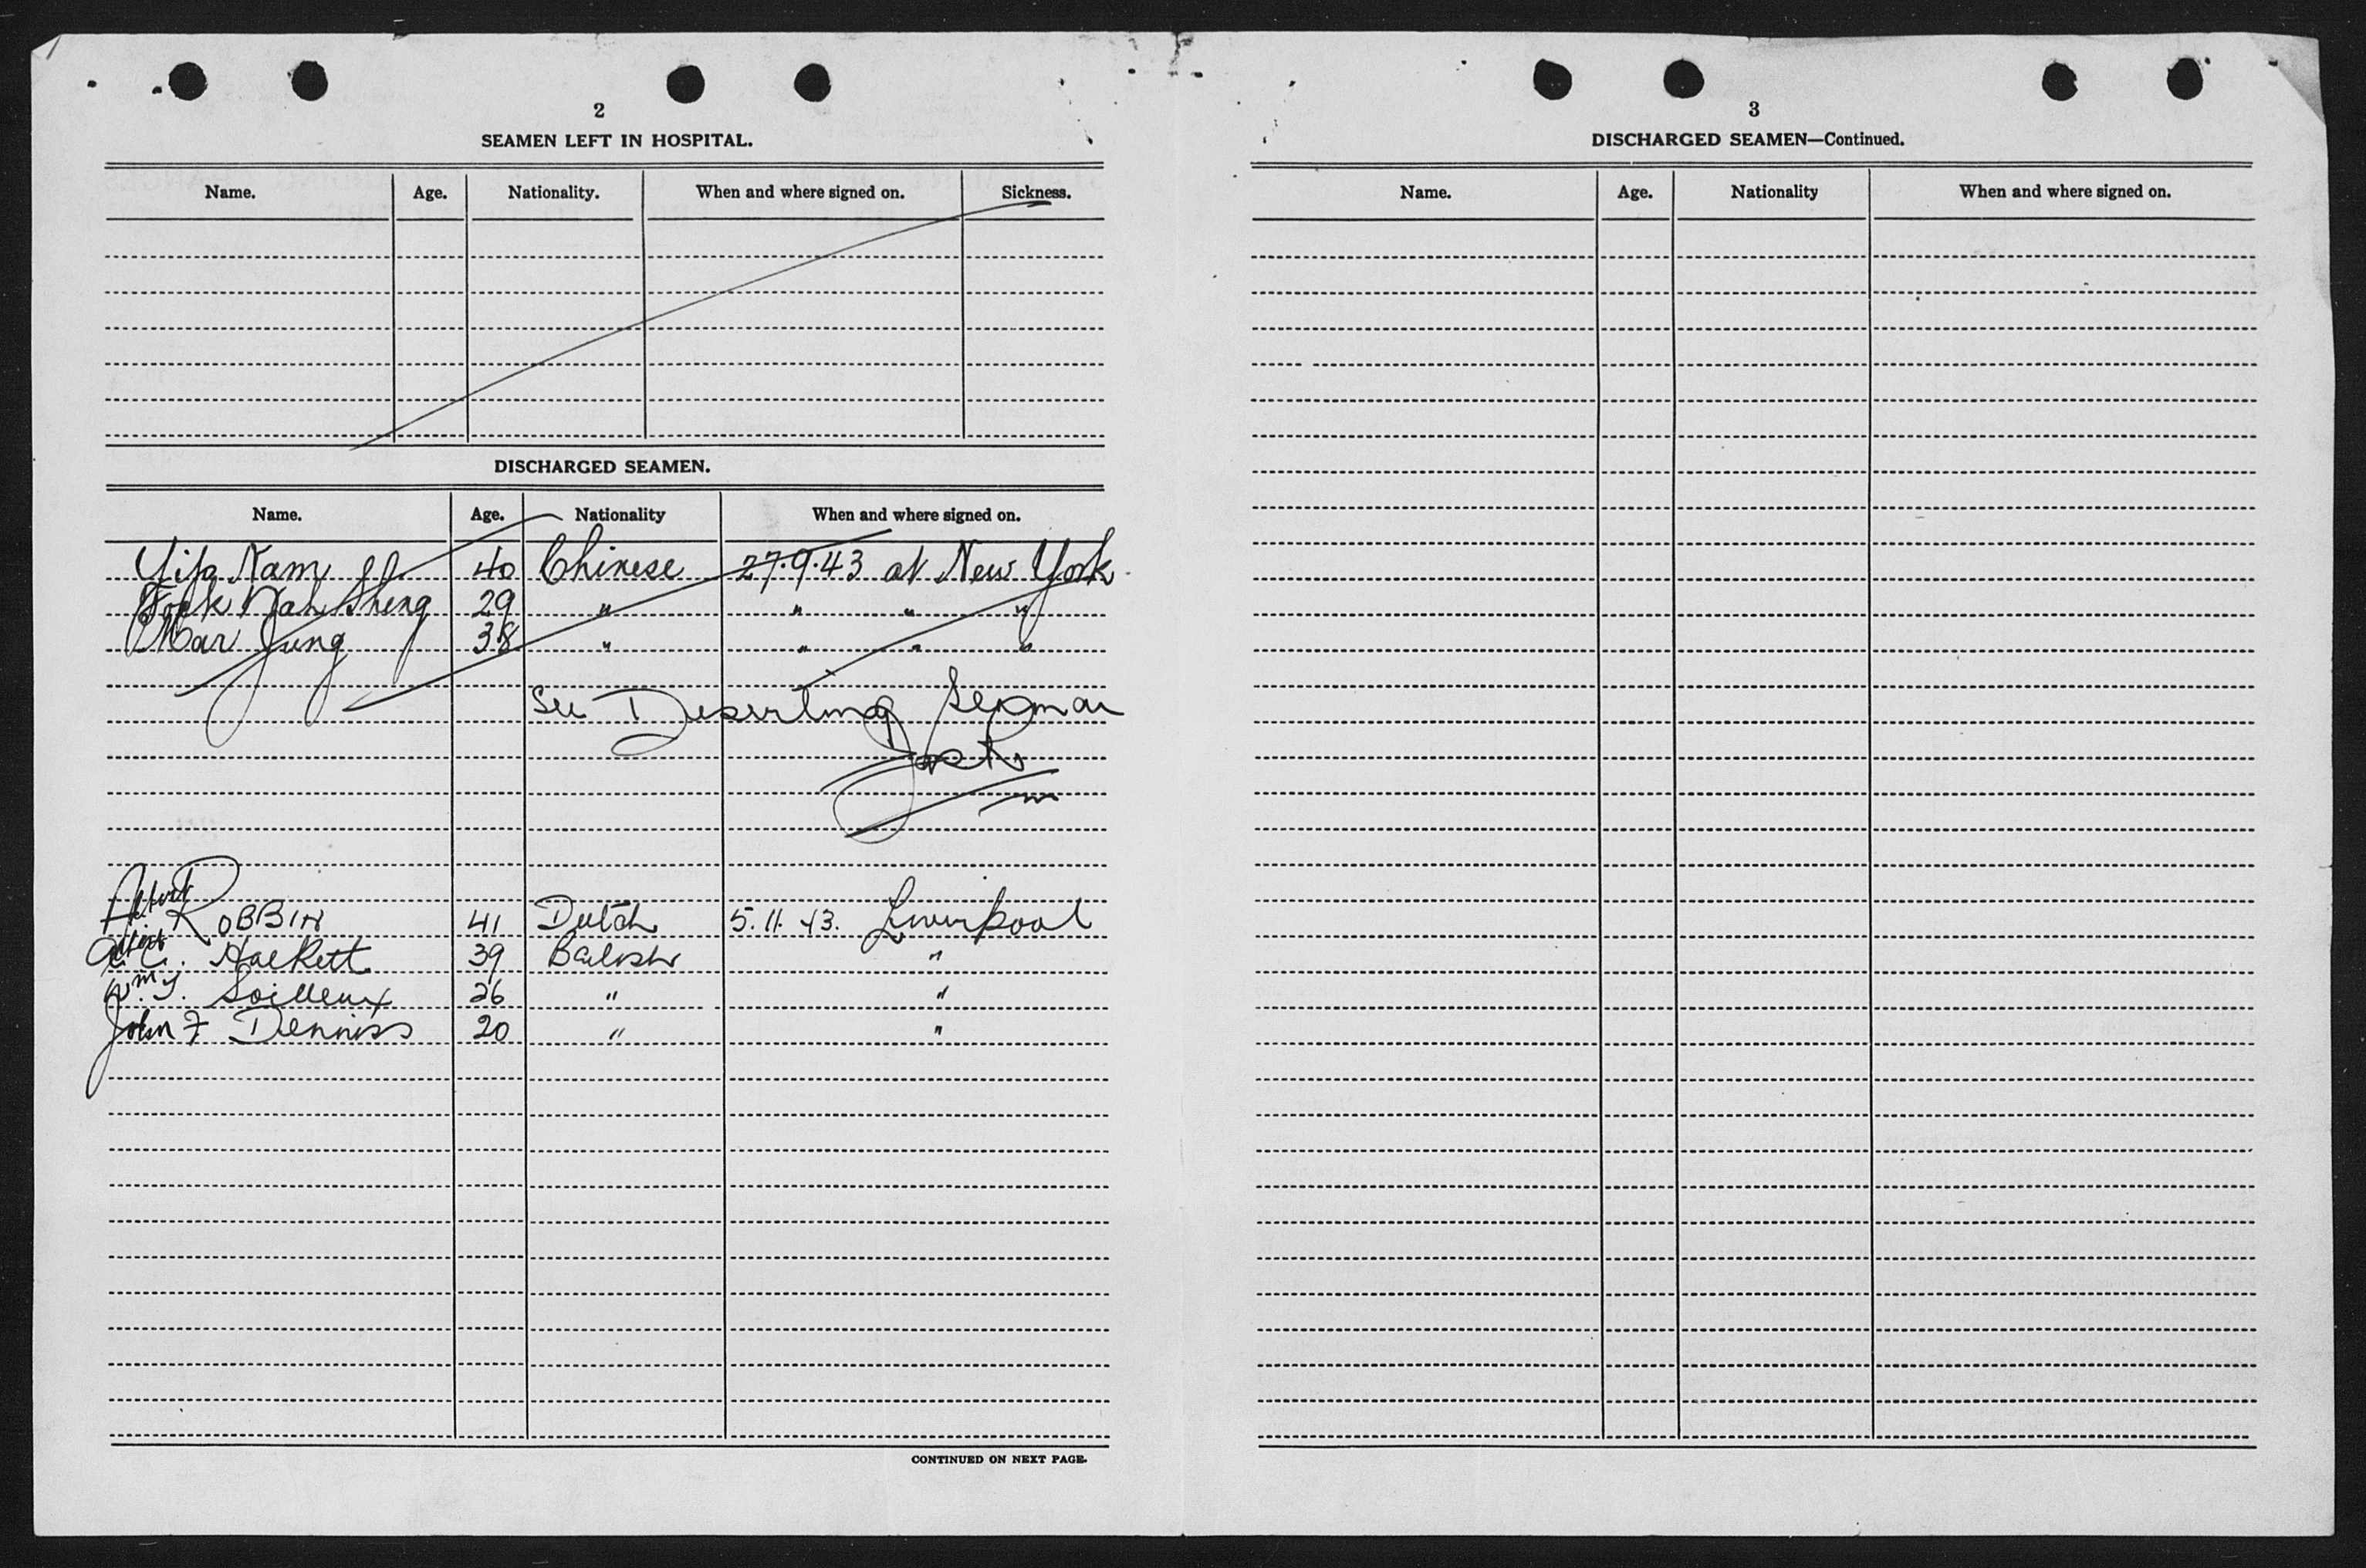 2
SEAMEN LEFT IN HOSPITAL.
Name. Age. Nationality. When and where signed on. Sickness.
DISCHARGED SEAMEN.
Name. Age. Nationality When and where signed on.
Yip Nam 40 Chinese 27.9.43 at New York
Fook Wah Sheng 29 " " " "
Mar Jung 38 " " " "
See Deserting Seaman
Robbin 41 Dutch 5.11.43. Liverpool
C. Hackett 39 British "
Wm J. Soilleux 26 " "
John F Denniss 20 " "
CONTINUED ON NEXT PAGE.
3
DISCHARGED SEAMEN—Continued.
Name. Age. Nationality When and where signed on.